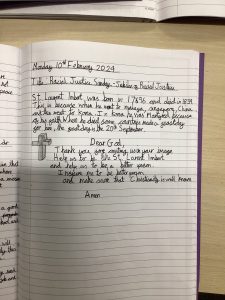 Monday 10th February 2024
Title: Racial Justice Sunday - Jubilee of Racial Justice
St. Laurent Imbert was born in 1796 and died in 1839.
This is because when he went to Malaysia, Singapore, China
and then went to Korea. In Korea he was Martyred because
of his faith. When he died some countries made a feast day
for him, the feast day is the 20th September.
Dear God,
Thank you for making us in your image
Help us to be like St. Laurent Imbert
and help us to be a better person
Inspire me to be better person
and make sure that Christianity is well known
Amen